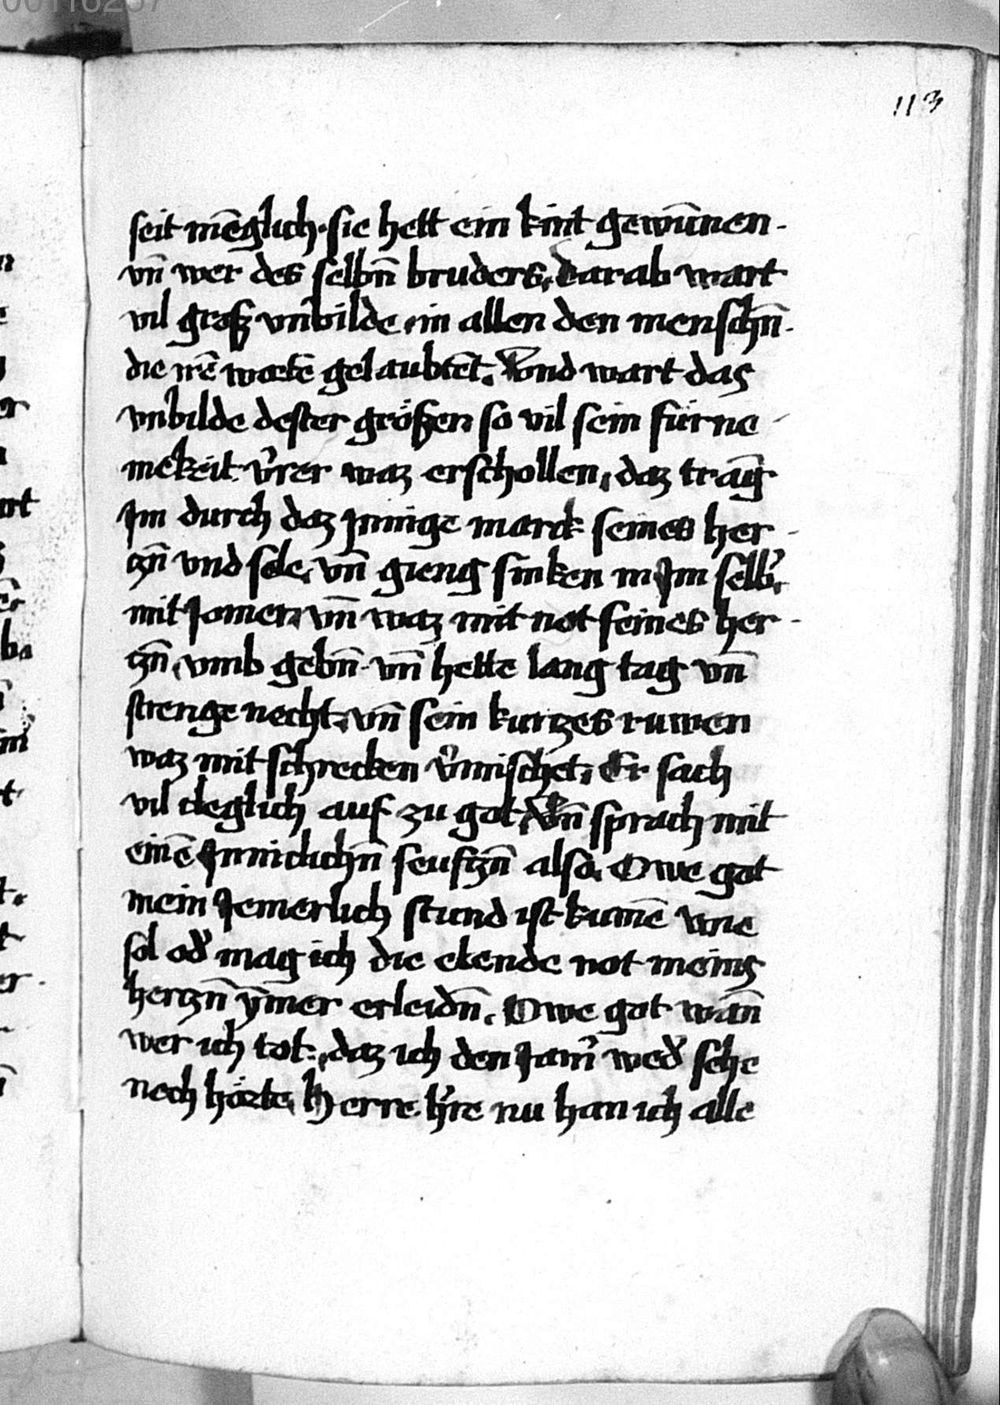 00116257
113
seit mēglich · sie hett ein kint gewūnen ·
vn̄ wer des selbn̄ bruders, Darab wart
vil groß vnbilde · in allen den menschn̄ ·
die irē worte gelaubtēt. Vond wart das
vnbilde dester größen so vil sein fürne
mekeit v̓rer waz erschollen, daz trāg
Im durch daz Jnnige marck seines her
czn̄ vnd sele, vn̄ gieng sinken in Jm selb̓,
mit Jomer, vn̄ waz mit not seines her
czn̄, vmb gebn̄ · vn̄ hette lang tag vn̄
strenge necht, vn̄ sein kurczes ruwen
waz mit schrecken v̓mischet, Er sach
vil cleglich auf zu got, Vn̄ sprach mit
einē Jnniclichn̄ seufczn̄ also, Owe got
mein Jemerlich stund ist kumē wie
sol od̓ mag ich die elende not meins
herczn̄ ȳmer erleidn̄. Owe got wān
wer ich tot, daz ich den Jam̓ wed̓ sehe
noch hörte, Herre h̓re nu han ich alle